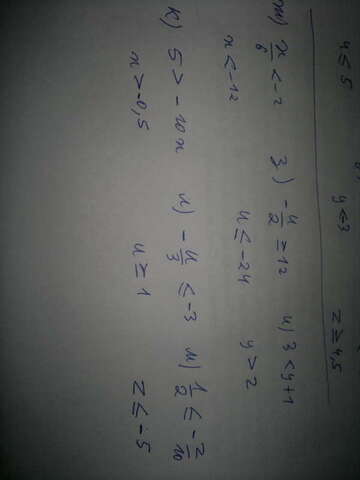 u ≤ 5 y < -3 z ≥ 4,5
ж) x/6 < -2 з) -u/2 ≥ 12 и) 3 < y + 1
x < -12 u ≤ -24 y > 2
к) 5 > -10x л) -u/3 ≤ -3 м) 1/2 ≤ -z/10
x > -0,5 u ≥ 1 z ≤ -5